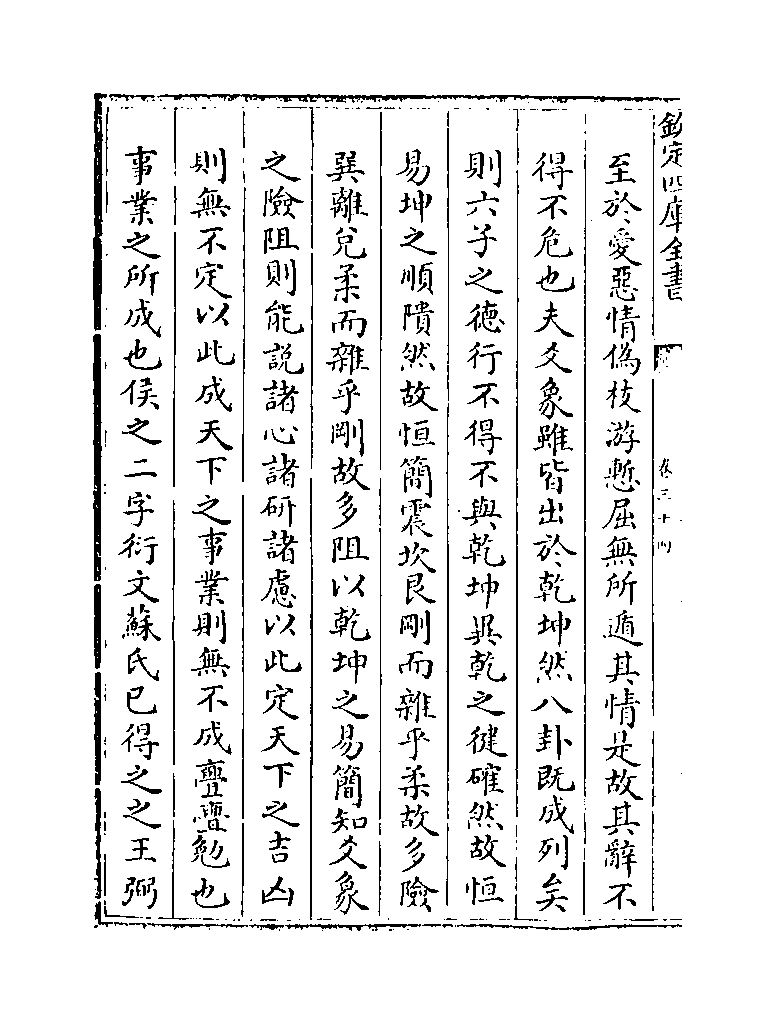 欽定四庫全書
卷三十四
至於愛惡情偽枝游慙屈無所遁其情是故其辭不
得不危也夫爻象雖皆出於乾坤然八卦既成列矣
則六子之德行不得不與乾坤異乾之健確然故恒
易坤之順隤然故恒簡震坎艮剛而雜乎柔故多險
巽離兌柔而雜乎剛故多阻以乾坤之易簡知爻象
之險阻則能説諸心諸研諸慮以此定天下之吉凶
則無不定以此成天下之事業則無不成亹亹勉也
事業之所成也侯之二字衍文蘇氏已得之之王弼